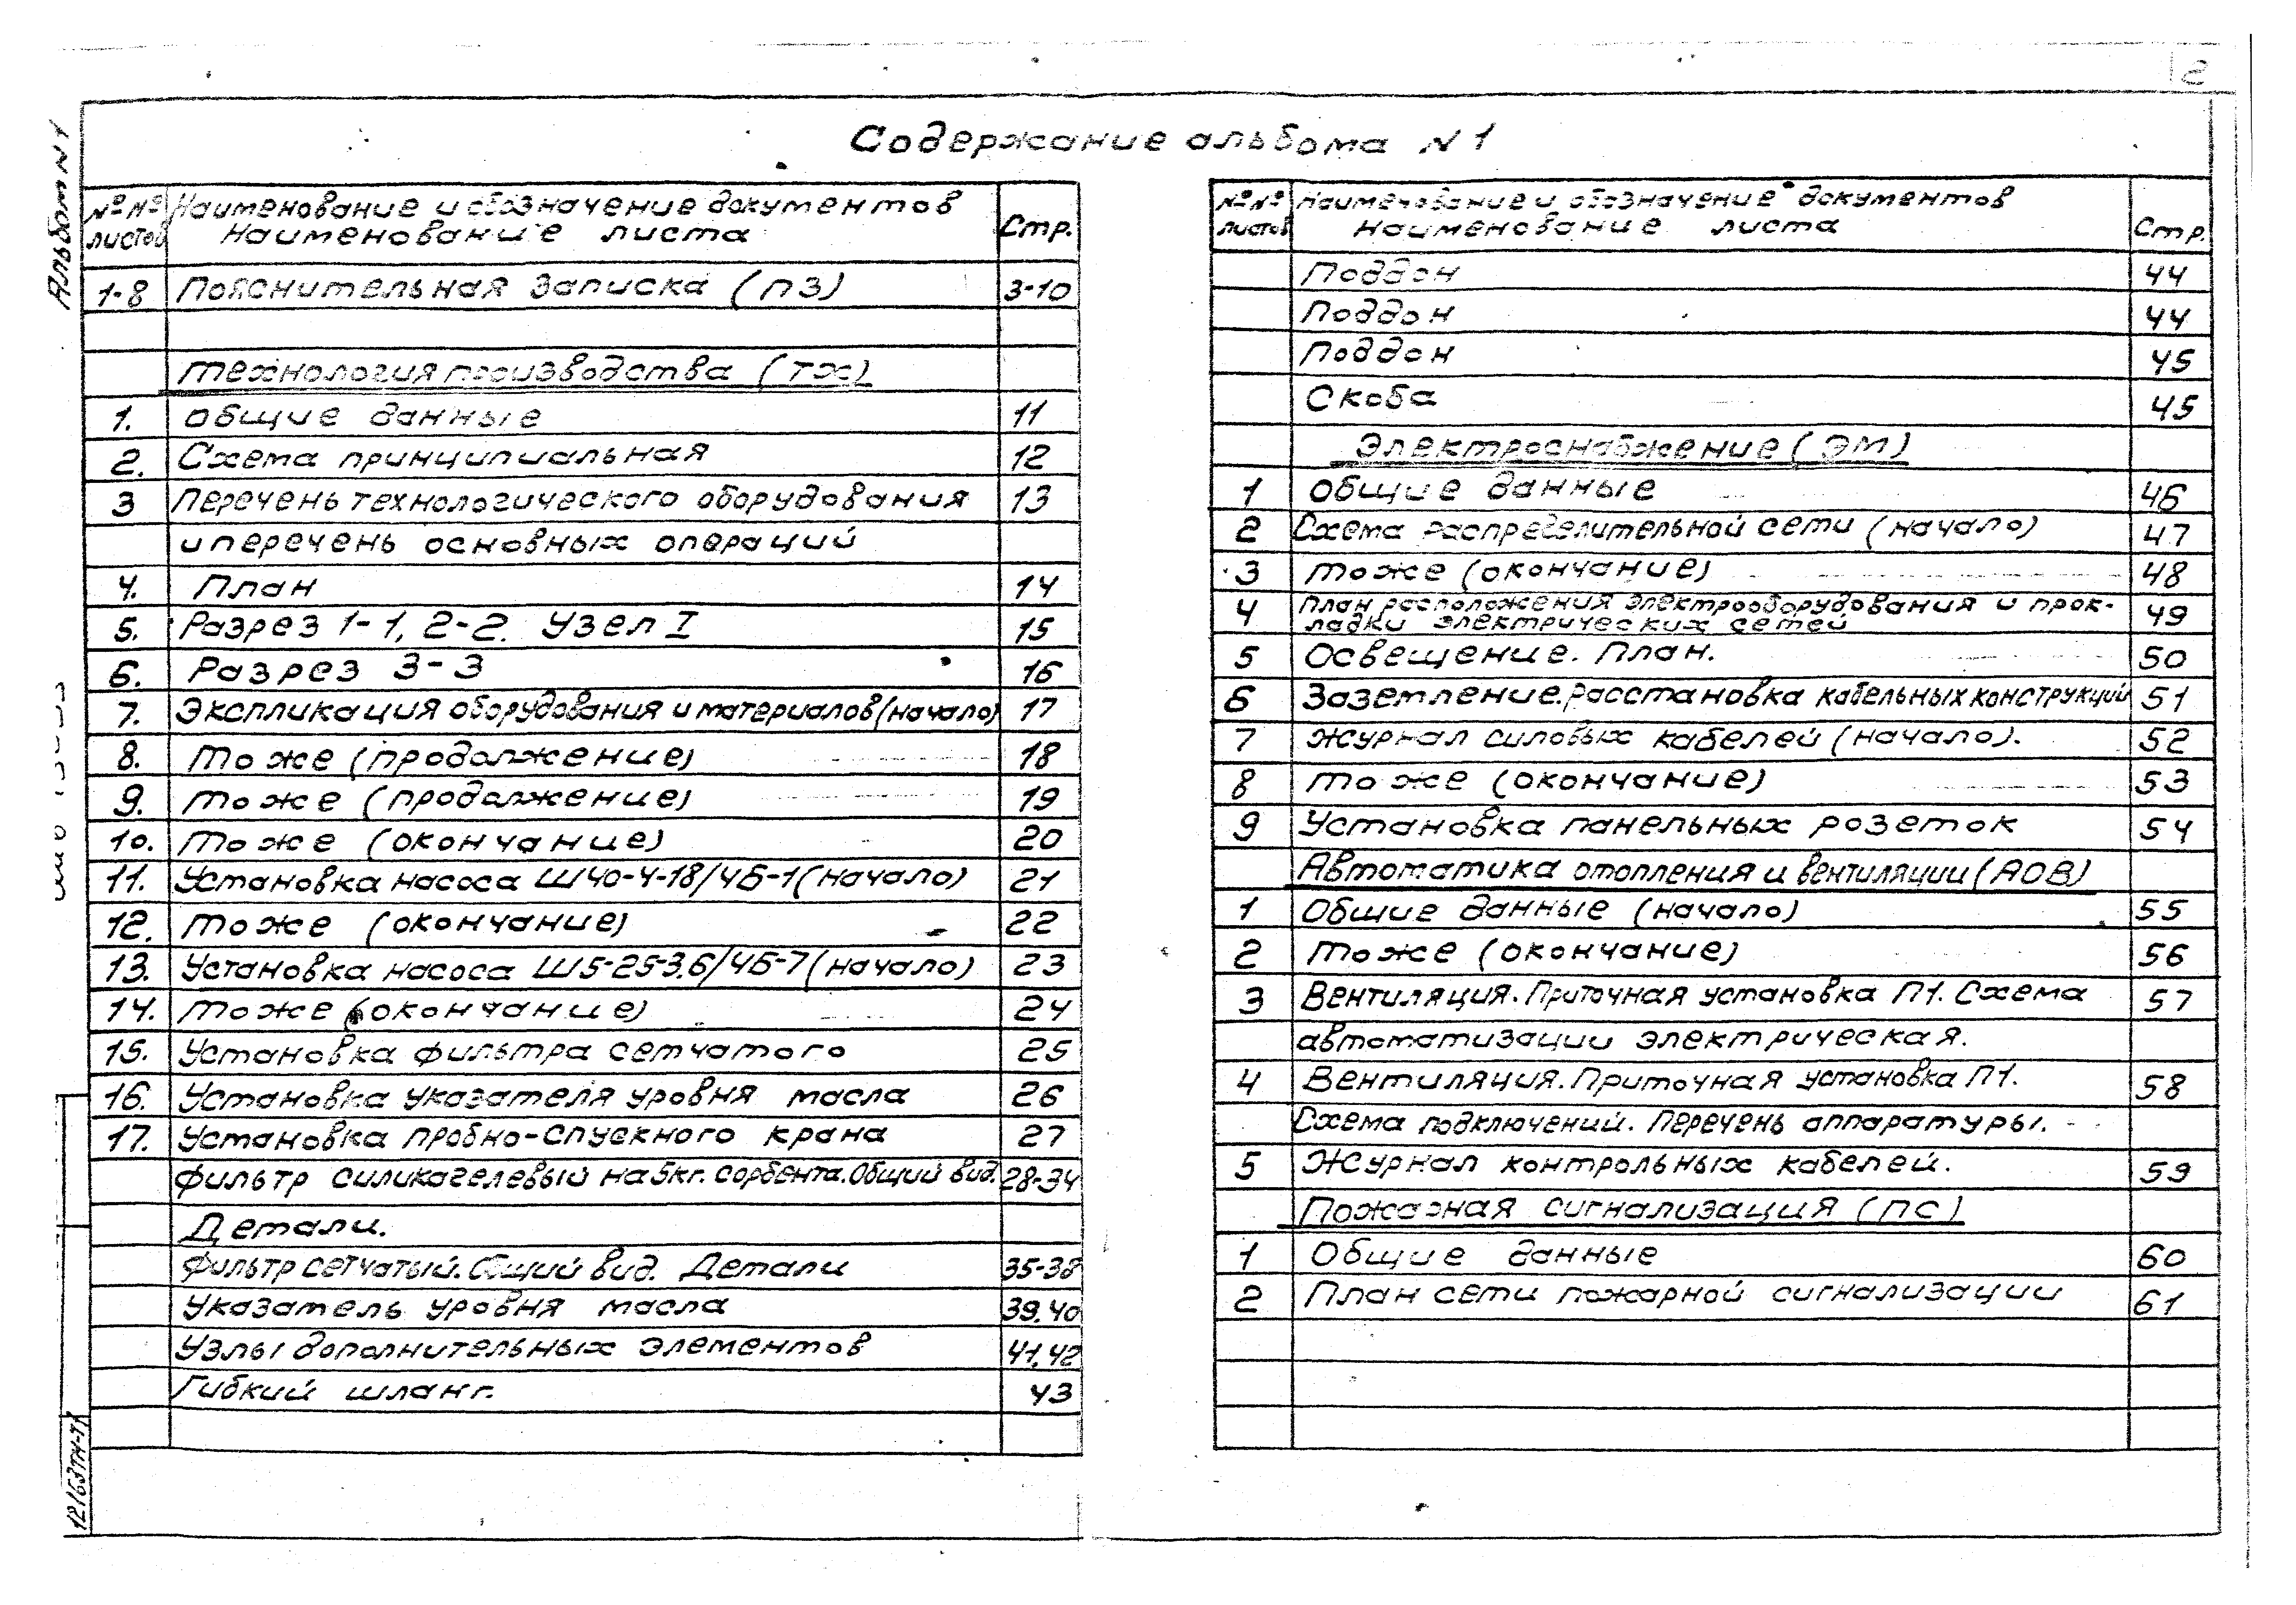 2
Альбом N 1
Содержание альбома N 1
№№ листов
Наименование и обозначение документов
Наименование листа
Стр.
1-8 Пояснительная записка (ПЗ) 3-10
Технология производства (ТХ)
1. Общие данные 11
2. Схема принципиальная 12
3 Перечень технологического оборудования 13
и перечень основных операций
4. План 14
5. Разрез 1-1, 2-2. Узел I 15
6. Разрез 3-3 16
7. Экспликация оборудования и материалов (начало) 17
8. То же (продолжение) 18
9. То же (продолжение) 19
10. То же (окончание) 20
11. Установка насоса Ш40-4-18/4Б-1 (начало) 21
12. То же (окончание) 22
13. Установка насоса Ш5-25-3,6/4Б-7 (начало) 23
14. То же (окончание) 24
15. Установка фильтра сетчатого 25
16. Установка указателя уровня масла 26
17. Установка пробно-спускного крана 27
Фильтр силикагелевый на 5кг. сорбента. Общий вид. 28-34
Детали.
Фильтр сетчатый. Общий вид. Детали 35-38
Указатель уровня масла 39,40
Узлы дополнительных элементов 41,42
Гибкий шланг. 43
12163ТМ-Т1
№№ листов
Наименование и обозначение документов
Наименование листа
Стр.
Поддон 44
Поддон 44
Поддон 45
Скоба 45
Электроснабжение (ЭМ)
1 Общие данные 46
2 Схема распределительной сети (начало) 47
3 То же (окончание) 48
4 План расположения электрооборудования и прок- 49
ладки электрических сетей
5 Освещение. План. 50
6 Заземление. Расстановка кабельных конструкций 51
7 Журнал силовых кабелей (начало). 52
8 То же (окончание) 53
9 Установка панельных розеток 54
Автоматика отопления и вентиляции (АОВ)
1 Общие данные (начало) 55
2 То же (окончание) 56
3 Вентиляция. Приточная установка П1. Схема 57
автоматизации электрическая.
4 Вентиляция. Приточная установка П1. 58
Схема подключений. Перечень аппаратуры.
5 Журнал контрольных кабелей. 59
Пожарная сигнализация (ПС)
1 Общие данные 60
2 План сети пожарной сигнализации 61